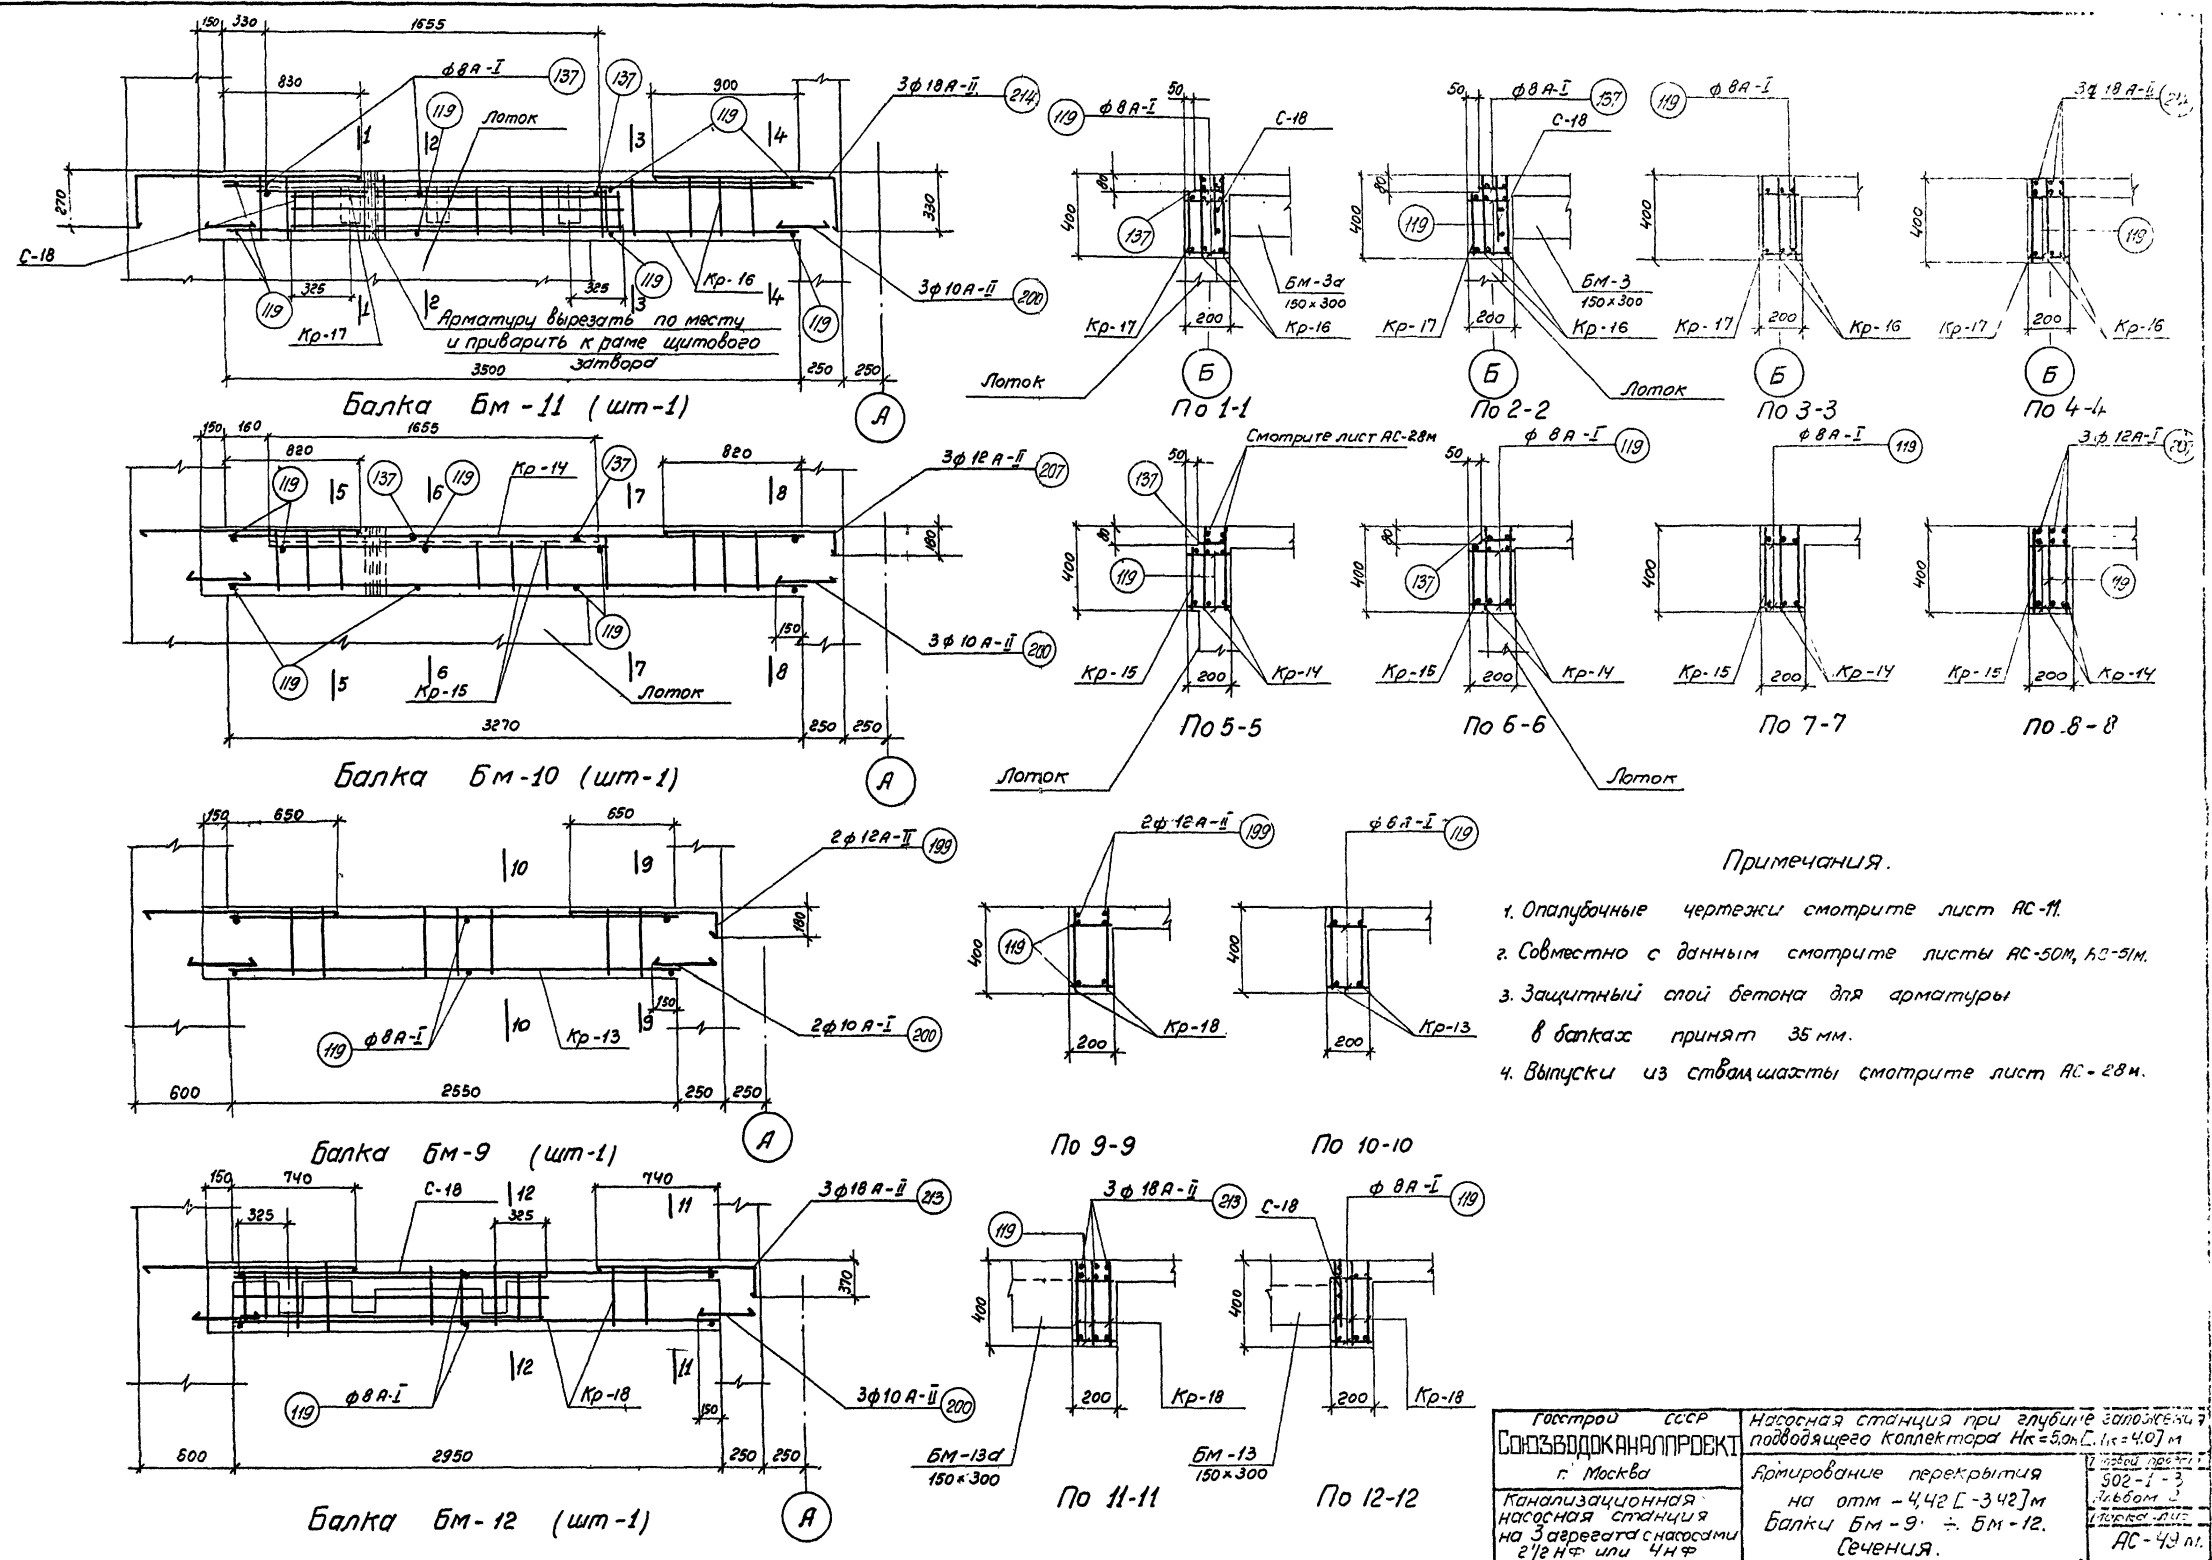 150 330 1655
830 900
φ8А-I 137 137
119 Лоток 119
1 2 3 4
3φ18А-II 214
270 330
С-18
119 325 325 119 119
Кр-17 Кр-16
3φ10А-II 200
1 2 3 4
Арматуру вырезать по месту
и приварить к раме щитового
затвора
3500 250 250
Балка Бм-11 (шт-1)
А
50 φ8А-I 119
С-18
80 400
137
Бм-3а
150×300
Кр-17 200 Кр-16
Лоток
Б
По 1-1
50 φ8А-I 137
С-18
80 400
119
Бм-3
150×300
Кр-17 200 Кр-16
Б
Лоток
По 2-2
119 φ8А-I
400
Кр-17 200 Кр-16
Б
По 3-3
3φ18А-II
400
119
Кр-17 200 Кр-16
Б
По 4-4
150 160 1655
820 820
119 5 137 6 119 Кр-14 137 7 8
3φ12А-II 207
180
150
3φ10А-II 200
119 5 6 119 7 8
Кр-15 Лоток
3270 250 250
Балка Бм-10 (шт-1)
А
Смотрите лист АС-28м
50
137
80 400
119
Кр-15 200 Кр-14
По 5-5
Лоток
50 φ8А-I 119
80 400
137
Кр-15 200 Кр-14
По 6-6
Лоток
φ8А-I 119
400
Кр-15 200 Кр-14
По 7-7
3φ12А-I
400
119
Кр-15 200 Кр-14
По 8-8
150 650 650
10 9
2φ12А-II 199
180
150
10 9
119 φ8А-I Кр-13
2φ10А-I 200
600 2550 250 250
Балка Бм-9 (шт-1)
А
2φ12А-II 199
400
119
200 Кр-18
По 9-9
φ6А-I 119
400
200 Кр-13
По 10-10
Примечания.
1. Опалубочные чертежи смотрите лист АС-11.
2. Совместно с данным смотрите листы АС-50м, АС-51м.
3. Защитный слой бетона для арматуры
в балках принят 35 мм.
4. Выпуски из ствола шахты смотрите лист АС-28м.
150 740 С-18 12 740
325 325 11
3φ18А-II 213
370
12 11
119 φ8А-I Кр-18
3φ10А-II 200
150
600 2950 250 250
Балка Бм-12 (шт-1)
А
3φ18А-II 213
119
400
200 Кр-18
Бм-13а
150×300
По 11-11
С-18 φ8А-I 119
400
200 Кр-18
Бм-13
150×300
По 12-12
Госстрой СССР
СОЮЗВОДОКАНАЛПРОЕКТ
г. Москва
Канализационная
насосная станция
на 3 агрегата с насосами
2½НФ или 4НФ
Насосная станция при глубине заложения
подводящего коллектора Нк=5,0м [Нк=4.0] м
Армирование перекрытия
на отм -4,42 [-3.42] м
Балки Бм-9 ÷ Бм-12.
Сечения.
Типовой проект
902-1-3
Альбом
Марка-лист
АС-49 м.